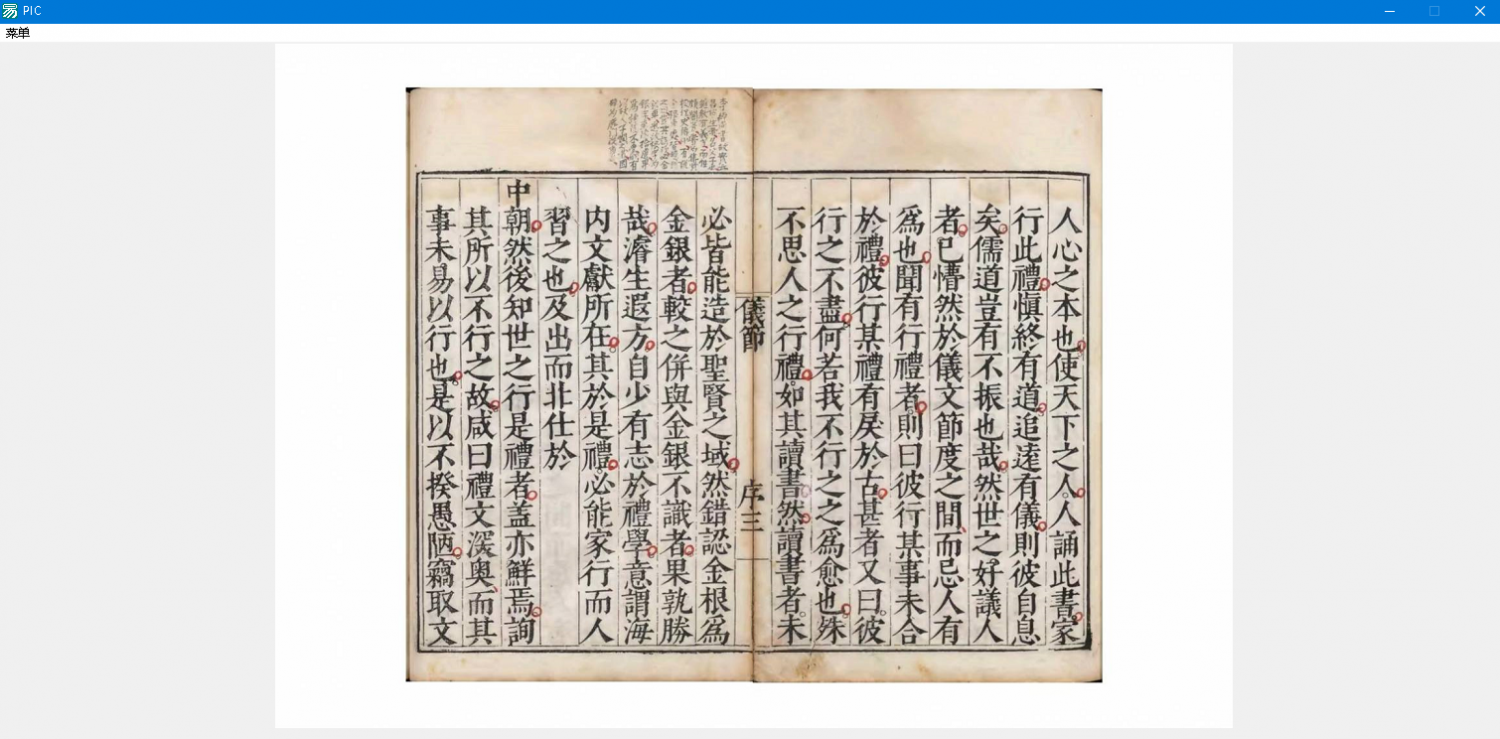 PIC
菜单
人心之本也使天下之人人誦此書家
行此禮慎終有道追遠有儀則彼自息
矣儒道豈有不振也哉然世之好議人
者已懵然於儀文節度之間而忌人有
爲也聞有行禮者則曰彼行某事未合
於禮彼行某禮有戾於古甚者又曰彼
行之不盡何若我不行之之爲愈也殊
不思人之行禮如其讀書然讀書者未
儀節
序三
必皆能造於聖賢之域然錯認金根爲
金銀者較之併與金銀不識者果孰勝
哉濬生遐方自少有志於禮學意謂海
内文獻所在其於是禮必能家行而人
習之也及出而北仕於
中朝然後知世之行是禮者盖亦鮮焉詢
其所以不行之故咸曰禮文深奥而其
事未易以行也是以不揆愚陋竊取文